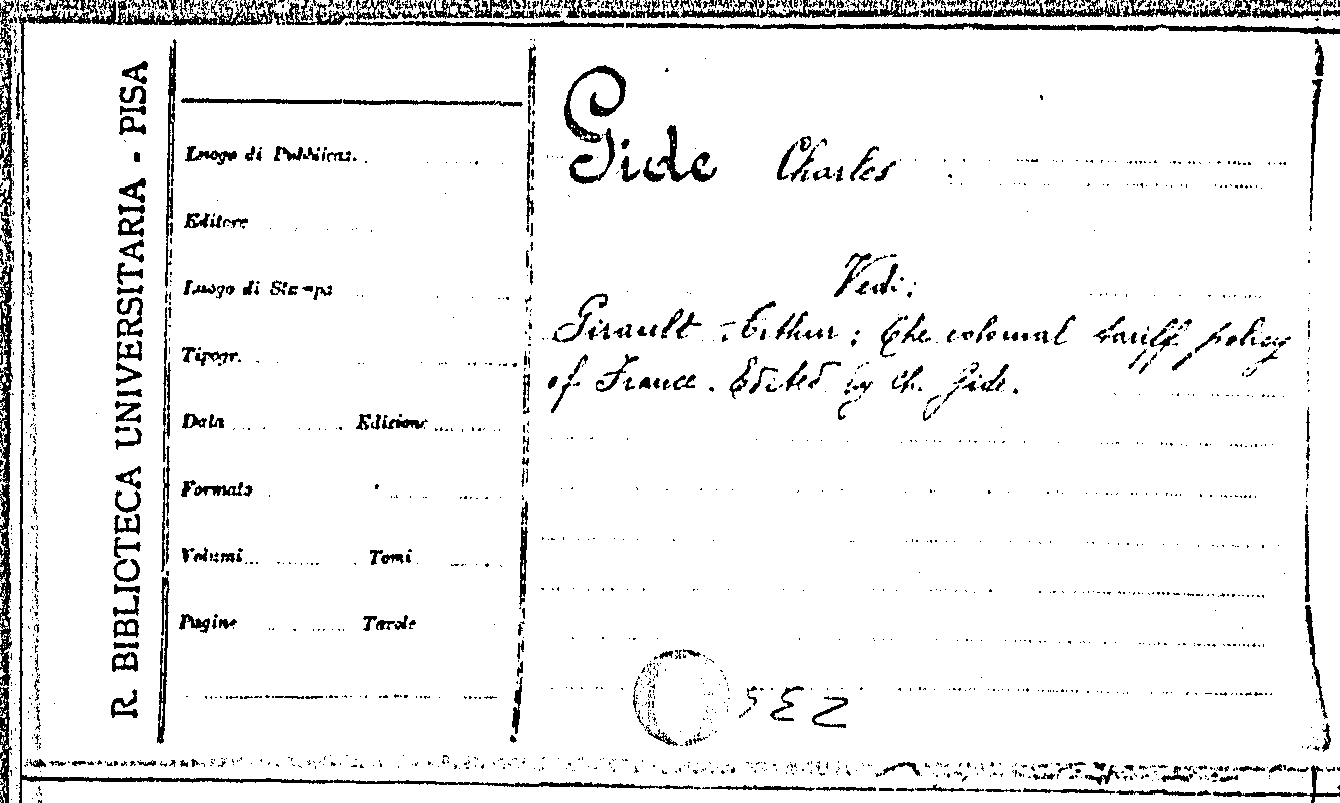 R. BIBLIOTECA UNIVERSITARIA - PISA
Luogo di Pubblicaz.
Editore
Luogo di Stampa
Tipogr.
Data Edizione
Formato
Volumi Tomi
Pagine Tavole
Gide Charles
Vedi:
Girault Arthur; The colonial tariff policy
of France. Edited by Ch. Gide.